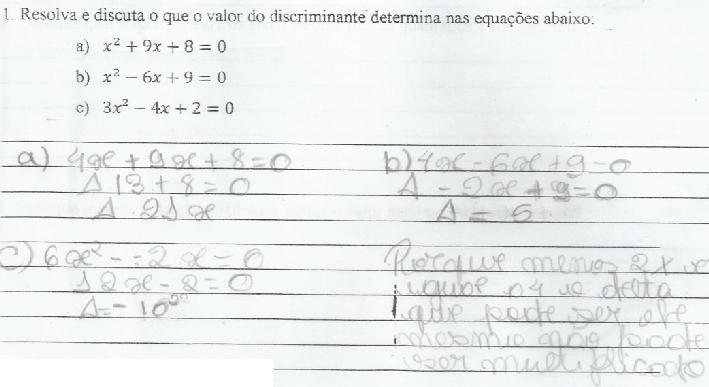 1. Resolva e discuta o que o valor do discriminante determina nas equações abaixo:
a) x² + 9x + 8 = 0
b) x² − 6x + 9 = 0
c) 3x² − 4x + 2 = 0
a) 4x + 9x + 8 = 0
Δ 13 + 8 = 0
Δ 21x
b) 4x - 6x + 9 = 0
Δ - 2x + 9 = 0
Δ = 5
c) 6x² - = 2x = 0
12x - 2 = 0
Δ = - 10
Porque menos 2x
delta
que pode ser ele
mesmo não pode
ser multiplicado